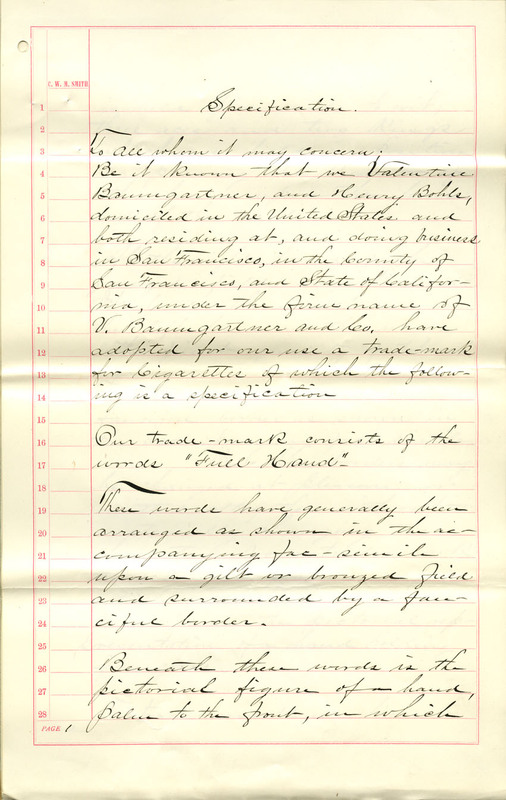 C. W. M. SMITH
1 Specification.
2
3 To all whom it may concern;
4 Be it known that we Valentine
5 Baumgartner, and Henry Bohls,
6 domiciled in the United States and
7 both residing at, and doing business
8 in San Francisco, in the County of
9 San Francisco, and State of Califor-
10 nia, under the firm name of
11 V. Baumgartner and Co, have
12 adopted for our use a trade-mark
13 for Cigarettes of which the follow-
14 ing is a specification
15
16 Our trade-mark consists of the
17 words "Full Hand"-
18
19 These words have generally been
20 arranged as shown in the ac-
21 companying fac-simile
22 upon a gilt or bronzed field
23 and surrounded by a fan-
24 ciful border.
25
26 Beneath these words is the
27 pictorial figure of a hand,
28 palm to the front, in which
PAGE 1